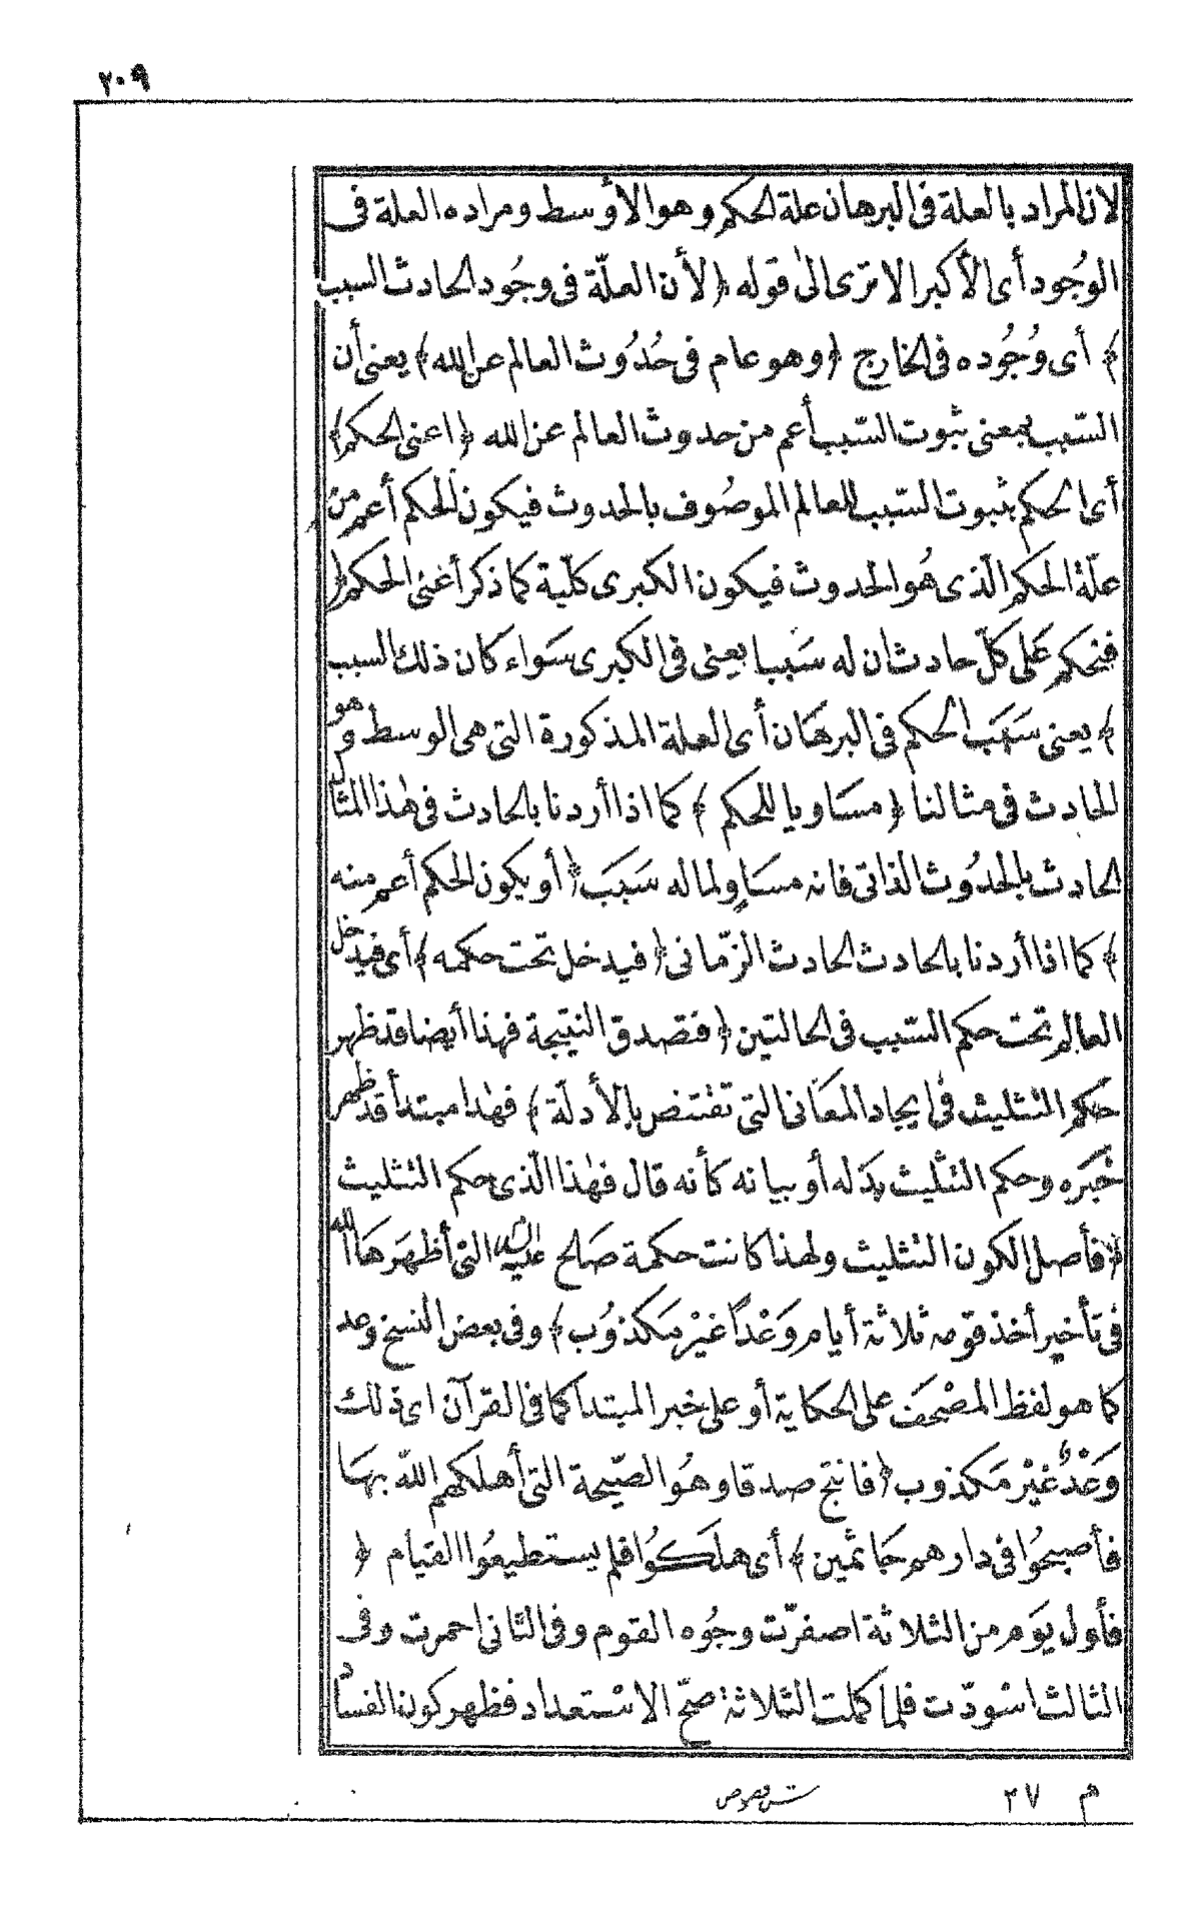 ٢٠٩
لان المراد بالعلة فى البرهان علة الحكم وهو الأوسط ومراده العلة فى
الوجُود أى الأكبر الا ترى الىٰ قوله ﴿ لأن العلّة فى وجُود الحادث السبب
﴾ أى وُجُوده فى الخارج ﴿ وهو عام فى حُدُوث العالم عن الله ﴾ يعنى أن
السّبب بمعنى ثبوت السّبب أعم من حدوث العالم عن الله ﴿ اعنى الحكم ﴾
أى الحكم بثبوت السّبب للعالم الموصُوف بالحدوث فيكون الحكم أعم من
علّة الحكم الّذى هُو الحدوث فيكون الكبرى كلّية كما ذكر أغنى الحكم ﴿
فنحكم عَلى كلّ حادث ان له سَببا يعنى فى الكبرى سَواء كان ذلك السبب
﴾ يعنى سَبَب الحكم فى البرهَان أى العلة المذكورة التى هى الوسط وهو
الحادث فى مثالنا ﴿ مسَاويا للحكم ﴾ كما اذا أردنا بالحادث فى هٰذا المثا
الحادث بالحدُوث الذاتى فانه مسَاوٍ لما له سَبَب ﴿ أو يكون الحكم أعم منه
﴾ كما اذا أردنا بالحادث الحادث الزّمانى ﴿ فيدخل تحت حكمه ﴾ أى فيدخل
العالم تحت حكم السّبب فى الحالتين ﴿ فتصدق النتيجة فهذا أيضا قد ظهر
حكم التثليث فى ايجاد المعَانى التى تقتنص بالأدلة ﴾ فهٰذا مبتدأ قد ظهر
خَبَره وحكم التثليث بدَله أو بيانه كأنه قال فهٰذا الّذى حكم التثليث
﴿ فأصل الكون التثليث ولهذا كانت حكمة صَالح عليه السلام التى أظهَرهَا الله
فى تأخير أخذ قومه ثلاثة أيام وَعْدًا غيْر مَكذوُب ﴾ وفى بعض النسخ وعد
كما هو لفظ المصْحَف على الحكاية أو على خبر المبتدا كما فى القرآن اى ذلك
وَعْدٌ غيْر مَكذوب ﴿ فانتج صدقا وهُو الصّيحة التى أهلكهم اللّه بهَا
فأصبحُوا فى دارهم جَاثمين ﴾ أى هلَكوُا فلم يستطيعُوا القيام ﴿
فأول يَوم من الثلاثة اصفرّت وجُوه القوم وفى الثانى احمرت وفى
الثالث اسْودّت فلما كملت الثلاثة صحّ الاسْتعداد فظهر كون الفساد
م ٢٧ ش فصوص